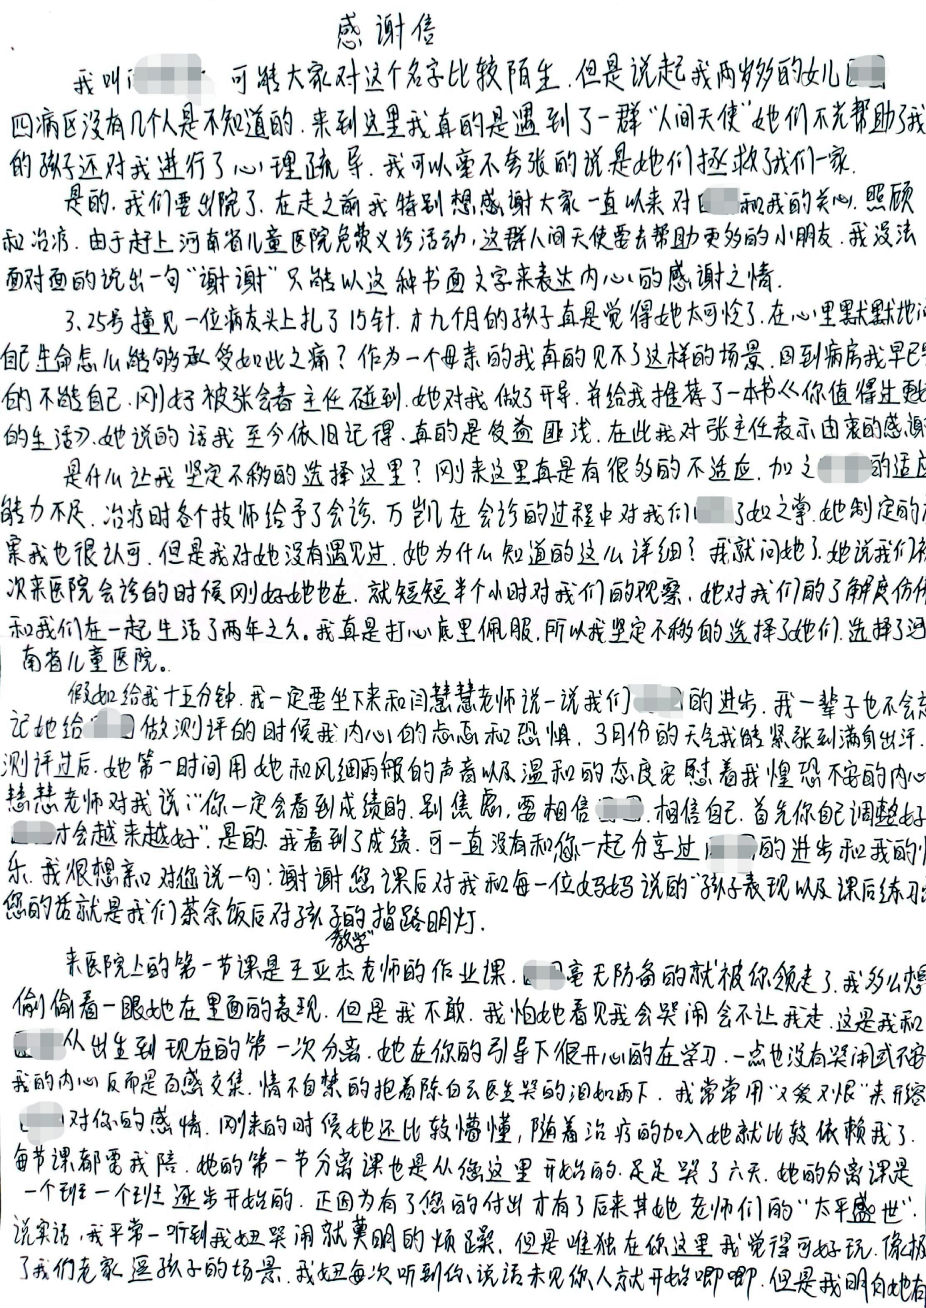 感谢信
我叫 可能大家对这个名字比较陌生.但是说起我两岁多的女儿
四病区没有几个人是不知道的.来到这里我真的是遇到了一群“人间天使”她们不光帮助了我
的孩子还对我进行了心理疏导.我可以毫不夸张的说是她们拯救了我们一家.
是的.我们要出院了.在走之前我特别想感谢大家一直以来对 和我的关心.照顾
和治疗.由于赶上河南省儿童医院免费义诊活动,这群人间天使要去帮助更多的小朋友.我没法
面对面的说出一句“谢谢”只能以这种书面文字来表达内心的感谢之情.
3.25号撞见一位病友头上扎了15针.才九个月的孩子真是觉得她太可怜了.在心里默默地问
自己生命怎么能够承受如此之痛?作为一个母亲的我真的见不了这样的场景.回到病房我早已哭
的不能自己.刚好被张会春主任碰到.她对我做了开导.并给我推荐了一本书《你值得过更好
的生活》.她说的话我至今依旧记得.真的是受益匪浅.在此我对张主任表示由衷的感谢
是什么让我坚定不移的选择这里?刚来这里真是有很多的不适应.加之 的适应
能力不足.治疗时各个技师给予了会诊.万凯在会诊的过程中对我们 了如之掌.她制定的方
案我也很认可.但是我对她没有遇见过.她为什么知道的这么详细?我就问她了.她说我们初
次来医院会诊的时候刚好她也在.就短短半个小时对我们的观察.她对我们的了解度仿佛
和我们在一起生活了两年之久。我真是打心底里佩服.所以我坚定不移的选择了她们.选择了河
南省儿童医院。
假如给我十五分钟.我一定要坐下来和闫慧慧老师说一说我们 的进步.我一辈子也不会忘
记她给 做测评的时候我内心的忐忑和恐惧.3月份的天气我能紧张到满身出汗.
测评过后.她第一时间用她和风细雨般的声音以及温和的态度安慰着我惶恐不安的内心
慧慧老师对我说:“你一定会看到成绩的.别焦虑,要相信 .相信自己.首先你自己调整好
才会越来越好”.是的.我看到了成绩.可一直没有和您一起分享过 的进步和我的快
乐.我很想亲口对您说一句:谢谢您课后对我和每一位妈妈说的“孩子表现以及课后练习”
您的话就是我们茶余饭后对孩子的教学指路明灯.
来医院上的第一节课是王亚杰老师的作业课. 毫无防备的就被你领走了.我多么想
偷偷看一眼她在里面的表现.但是我不敢.我怕她看见我会哭闹会不让我走.这是我和
从出生到现在的第一次分离.她在你的引导下很开心的在学习.一点也没有哭闹或不安
我的内心反而是百感交集.情不自禁的抱着陈白云医生哭的泪如雨下.我常常用“又爱又恨”来形容
对你的感情.刚来的时候她还比较懵懂,随着治疗的加入她就比较依赖我了.
每节课都需我陪.她的第一节分离课也是从您这里开始的.足足哭了六天.她的分离课是
一个班一个班逐步开始的.正因为有了您的付出才有了后来其她老师们的“太平盛世”.
说实话,我平常一听到我妞哭闹就莫明的烦躁.但是唯独在你这里我觉得可好玩.像极
了我们老家逗孩子的场景.我妞每次听到你说话未见你人就开始唧唧.但是我明白她有